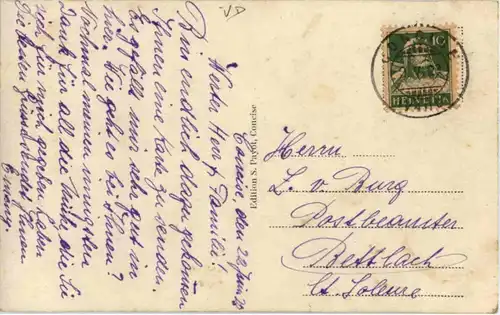 Concise, den 20 Juni 20
Werter Herr & Familie!
Bin endlich dazu gekommen
Ihnen eine Karte zu senden.
Es gefällt mir sehr gut in
hier. Wie geht es bei Ihnen?
Nochmal meinen innigsten
Dank für all die Mühe, die Sie
sich für mich gegeben haben.
Die besten Grüsse sendet Ihnen
Edition S. Payot, Concise
10
HELVETIA
Herrn
L. v Burg
Postbeamter
Bettlach
Ct. Soleure